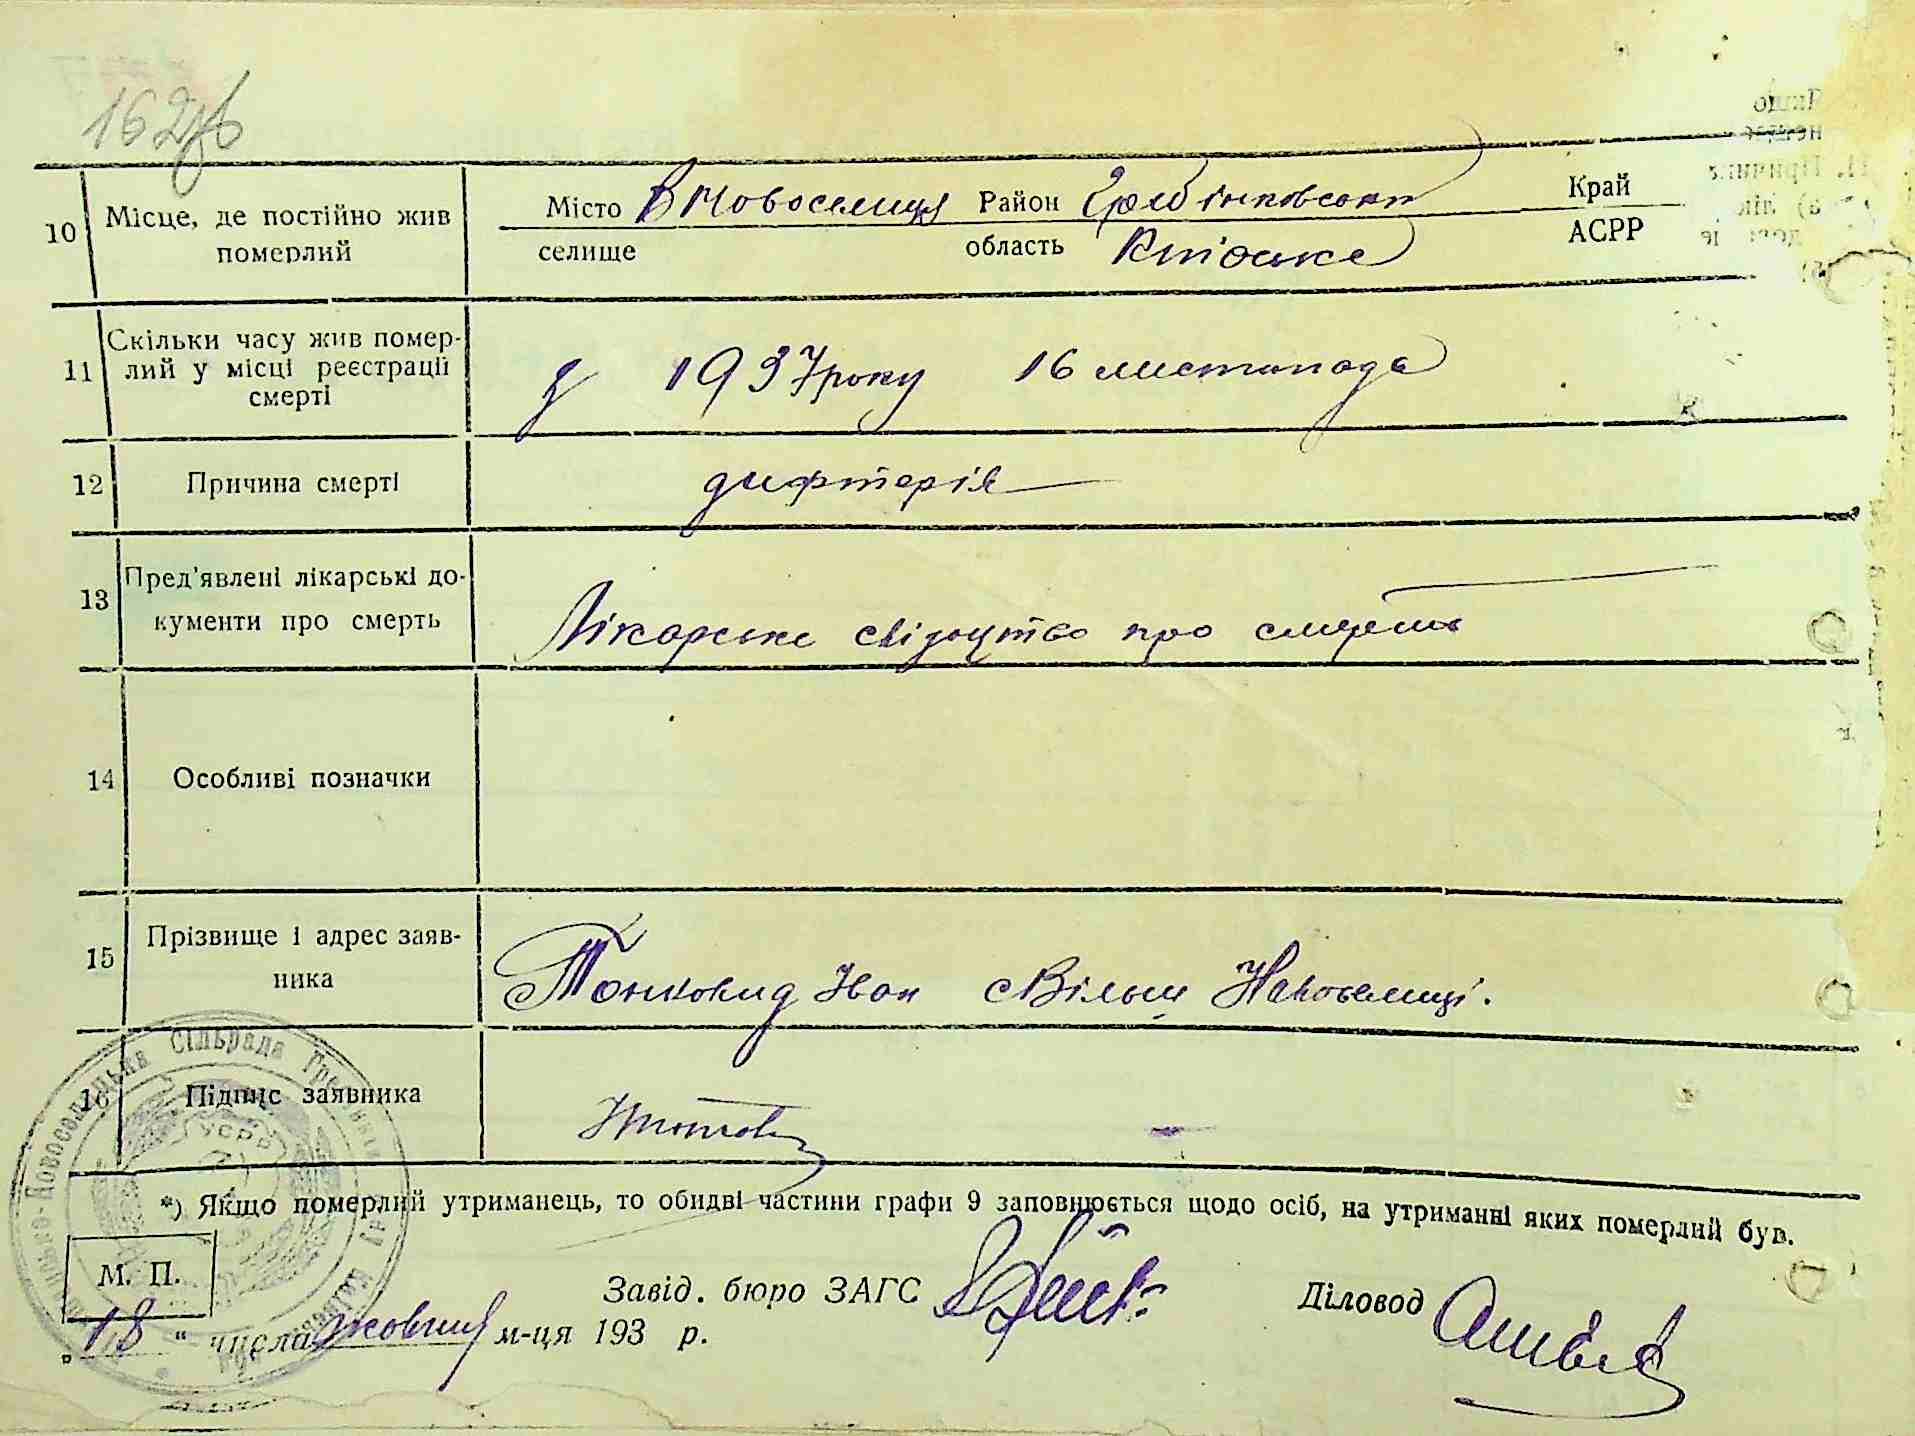 162
10 Місце, де постійно жив померлий
Місто В Новоселиця Район Гребінковський Край
селище область Київське АСРР
11 Скільки часу жив помер-
лий у місці реєстрації
смерті
з 1937 року 16 листопада
12 Причина смерті
дифтерія
13 Пред'явлені лікарські до-
кументи про смерть
Лікарське свідоцтво про смерть
14 Особливі позначки
15 Прізвище і адрес заяв-
ника
Тонковид Іван с Вільш Новоселиці.
16 Підпис заявника
*) Якщо померлий утриманець, то обидві частини графи 9 заповнюється щодо осіб, на утриманні яких померлий був.
М. П.
Завід. бюро ЗАГС
Діловод
„ 18 “ числа жовтня м-ця 193 р.
Новоселицька Сільрада
УСРР